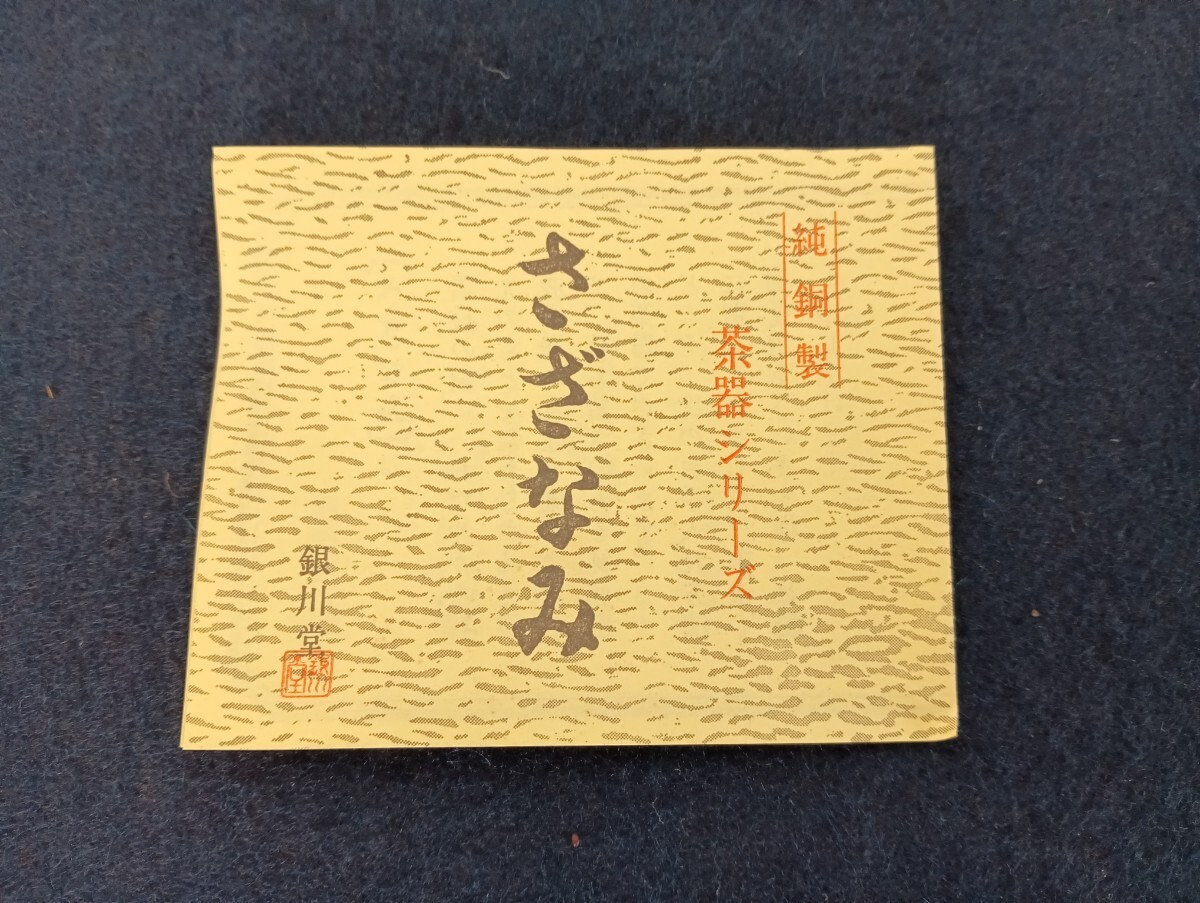 純銅製
茶器シリーズ
さざなみ
銀川堂